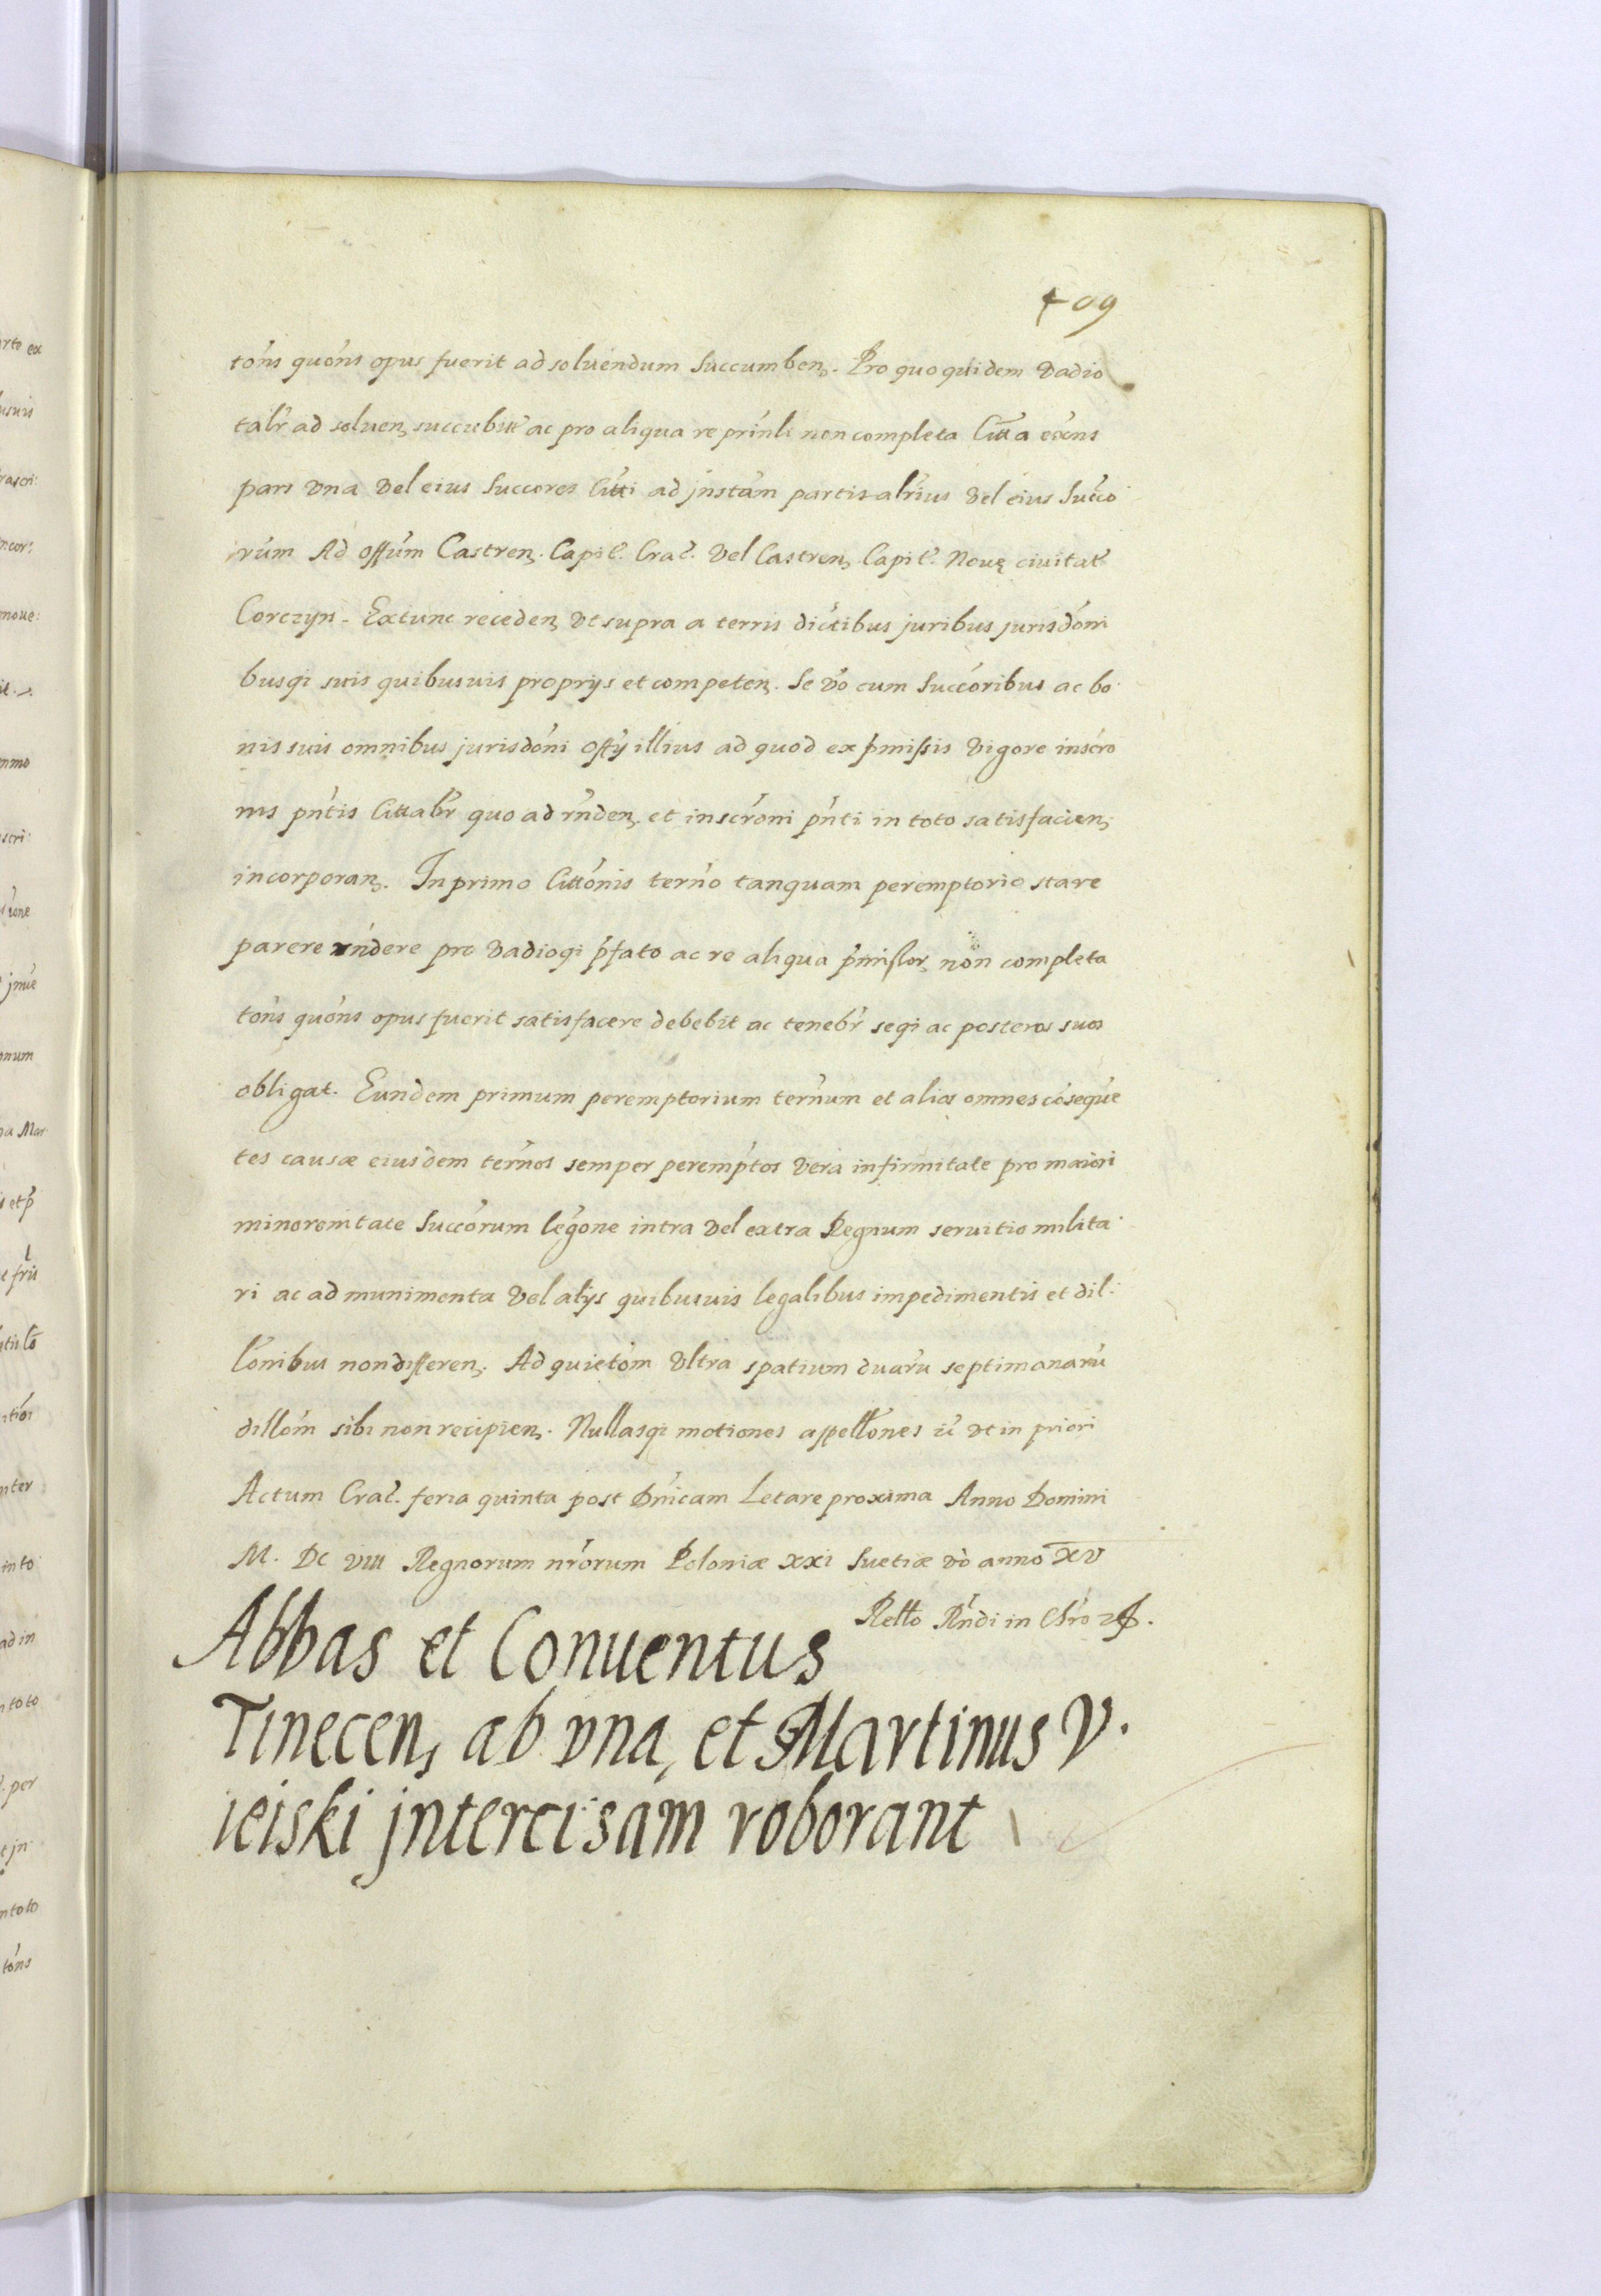 409
tons quons opus fuerit ad soluendum succumben. Pro quo quidem vadio
talr ad soluen, succubitt ac pro aliqua re prinli non completa Citta exens
pars vna vel eius succores Citti ad jnstam partis alrius vel eius succo
rum Ad offum Castren. Capit. Crac. vel Castren, Capit. Nouę ciuitat
Corczyn. Extunc receden, vt supra a terris distibus juribus jurisdoni
busqi suis quibusuis proprys et competen. Se vo cum succoribus ac bo
nis suis omnibus jurisdoni offy illius ad quod ex pmissis vigore inscro
nis pntis Cittabr quo ad rnden, et inscroni pnti in toto satisfacien,
incorporan. In primo Cittonis terno tanquam peremptorio stare
parere rndere pro vadioqi pfato ac re aliqua pmissor, non completa
tons quons opus fuerit satisfacere debebit ac tenebr seqi ac posteros suos
obligat. Eundem primum peremptorium ternum et alios omnes coseque
tes causæ eiusdem ternos semper peremptos vera infirmitate pro maiori
minorenitate succorum legone intra vel extra Regnum seruitio milita
ri ac ad munimenta vel alys quibusuis legalibus impedimentis et dil:
lonibus non differen. Ad quietom vltra spatium duaru septimanaru
dillom sibi non recipien. Nullasqi motiones appellones zc vt in priori
Actum Crac. feria quinta post Dnicam Letare proxima Anno Domini
M. DC VIII Regnorum nrorum Poloniæ XXI Suetiæ vo anno XV
Rello Rndi in Chro
Abbas et Conuentus
Tinecen, ab vna, et Martinus V.
ieiski jntercisam roborant